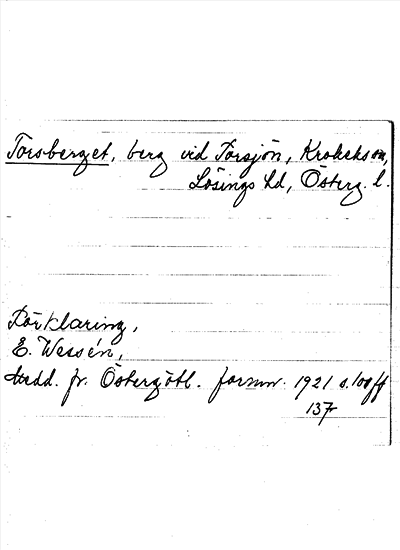 Torsberget, berg vid Torsjön, Krokeks sn,
Lösings hd, Österg. l.
Förklaring,
E. Wessén,
Medd. fr. Östergötl. fornm. 1921 s. 100 ff
137